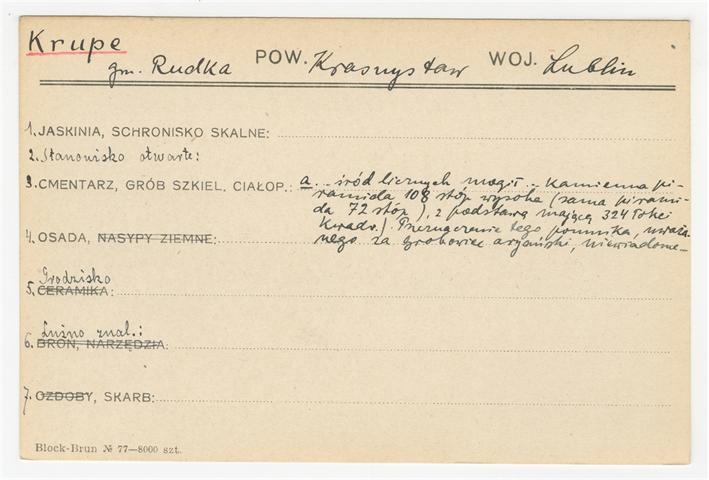 Krupe
gm. Rudka POW. Krasnystaw WOJ. Lublin
1. JASKINIA, SCHRONISKO SKALNE:
2. Stanowisko otwarte:
3. CMENTARZ, GRÓB SZKIEL. CIAŁOP.: a. śród licznych mogił - Kamienna pi-
ramida 108 stóp wysoka (sama pirami-
da 72 stóp), z podstawą mającą 324 łokci
kwadr.). Przeznaczenie tego pomnika, uważa-
4. OSADA, NASYPY ZIEMNE: nego za grobowiec aryański, niewiadome-
Grodzisko
5. CERAMIKA:
Luźno znal.:
6. BROŃ, NARZĘDZIA:
7. OZDOBY, SKARB:
Block-Brun № 77—8000 szt.